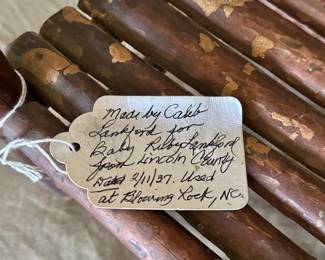 Made by Caleb
Lankford for
Baby Ruby Lankford
from Lincoln County
Dated 2/11/37. Used
at Blowing Rock, NC.